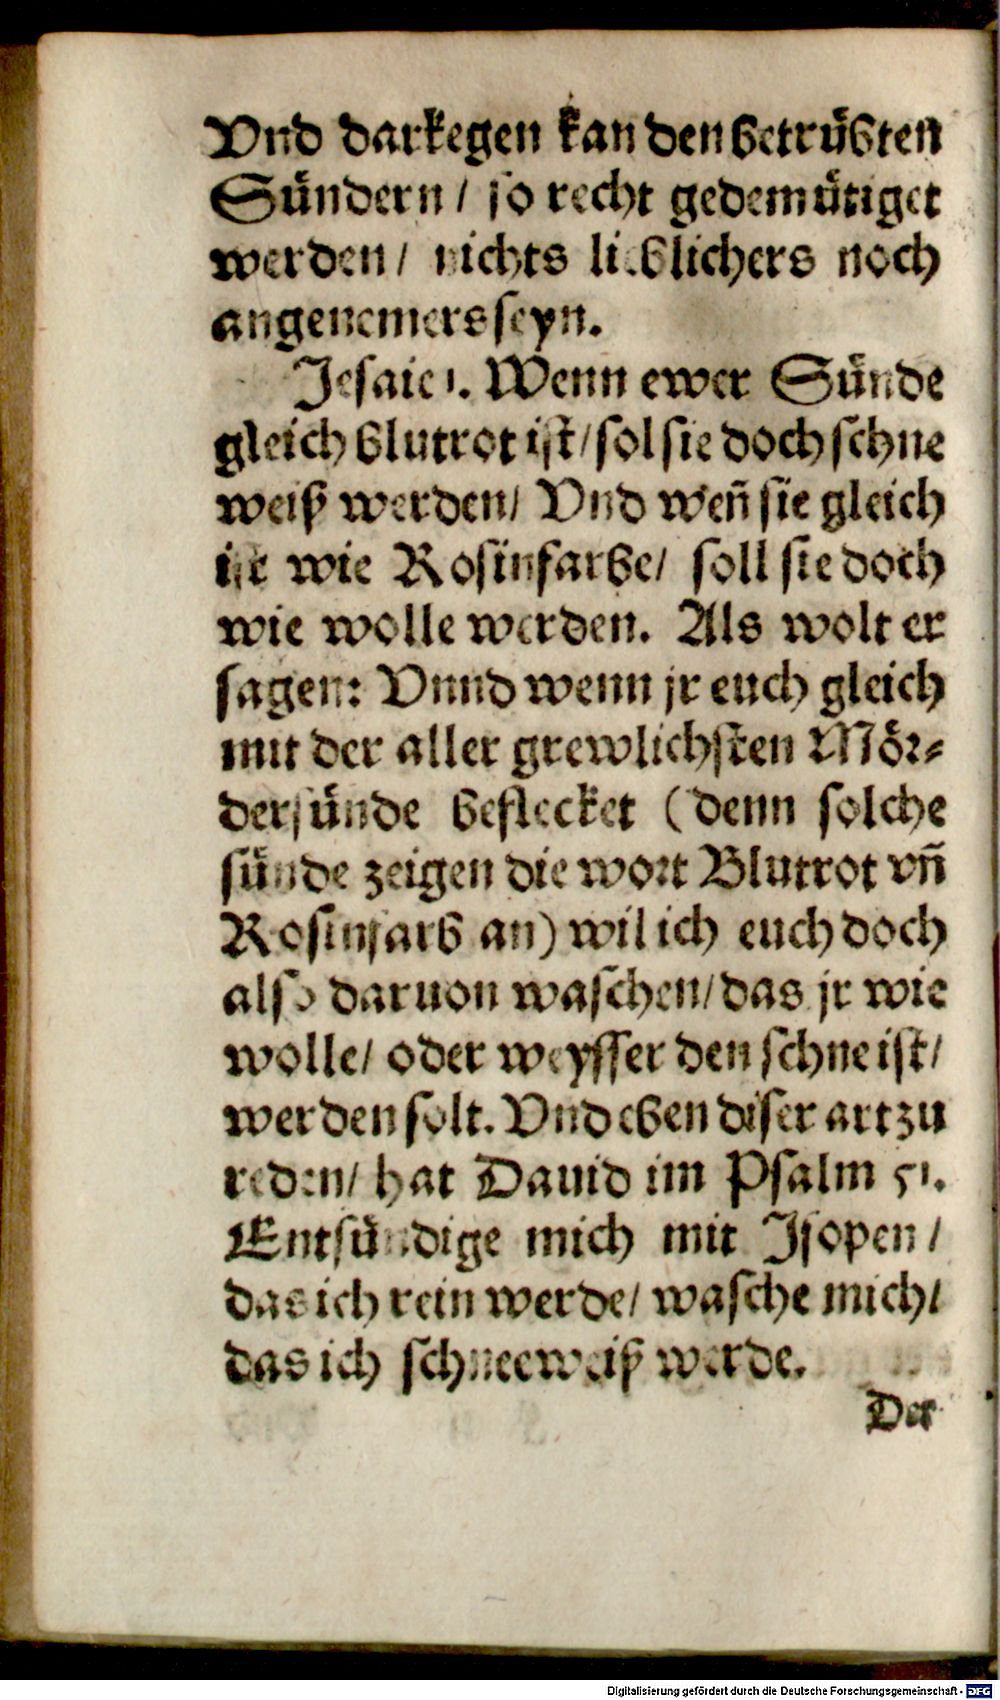 Vnd darkegen kan den betrübten
Sündern / so recht gedemütiget
werden / nichts lieblichers noch
angenemers seyn.
Jesaie 1. Wenn ewer Sünde
gleich blutrot ist / sol sie doch schne
weiß werden / Vnd weñ sie gleich
ist wie Rosinfarbe / soll sie doch
wie wolle werden. Als wolt er
sagen: Vnnd wenn jr euch gleich
mit der aller grewlichsten Mör-
dersünde beflecket (denn solche
sünde zeigen die wort Blutrot vñ
Rosinfarb an) wil ich euch doch
also daruon waschen / das jr wie
wolle / oder weysser den schne ist /
werden solt. Vnd eben diser art zu
reden / hat Dauid im Psalm 51.
Entsündige mich mit Jsopen /
das ich rein werde / wasche mich /
das ich schneeweiß werde.
Der
Digitalisierung gefördert durch die Deutsche Forschungsgemeinschaft - DFG